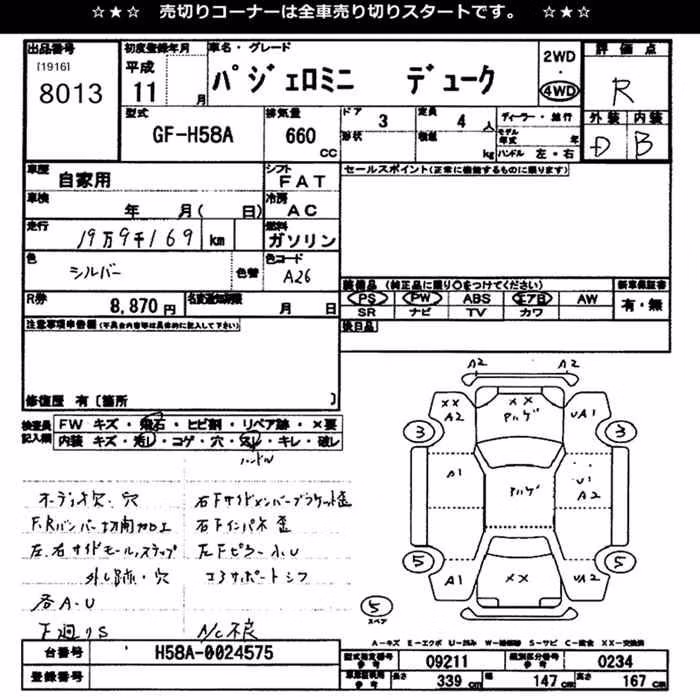 ☆★☆　売切りコーナーは全車売り切りスタートです。　☆★☆
出品番号 初度登録年月 車名・グレード 2WD・4WD 評価点
[1916] 8013 平成 11 月 パジェロミニ デューク R
型式 GF-H58A 排気量 660 CC ドア 3 形状 定員 4 人 積載 kg ディーラー・並行 モデル年式 年 ハンドル 左・右 外装 D 内装 B
車歴 自家用 シフト FAT セールスポイント(正常に機能するものに限ります)
車検 年 月( 日) 冷房 AC
走行 19万9千169 km 燃料 ガソリン
色 シルバー 色替 色コード A26
装備品 (純正品に限り○をつけてください) 新車保証書
PS PW ABS エアB AW 有・無
SR ナビ TV カワ
R券 8,870 円 名変通知期限 月 日
後日品
注意事項申告欄(不具合内容等は具体的に記入して下さい)
修復歴 有〔箇所 〕
検査員記入欄 FW キズ・飛石・ヒビ割・リペア跡・×要
内装 キズ・汚レ・コゲ・穴・スレ・キレ・破レ
ハンドル
オーディオ欠、穴
F、Rバンパー切開加工
左、右サイドモール、ステップ
外し跡・穴
各A・U
下廻りS
右Fサイドメンバーブラケット歪
右Fインパネ歪
左Fピラー小U
コアサポートシフ
A/C不良
A2 A2
XX A2 XX アルゲ UA1
3 3
A1 アルゲ U1 A2
5 5
A1 XX UA2
5 スペア
A-キズ E-エクボ U-凹み W-補修跡 S-サビ C-腐食 XX-交換済
台番号 H58A-0024575 型式指定番号 参考 09211 類別区分番号 参考 0234
登録番号 長さ 339 cm 幅 147 cm 高さ 167 cm